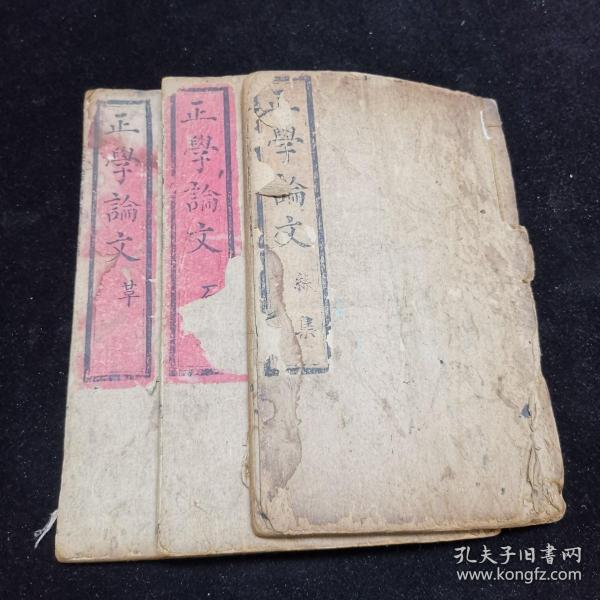 正學論文
草
正學論文
正學論文
集
孔夫子旧書网
www.kongfz.com